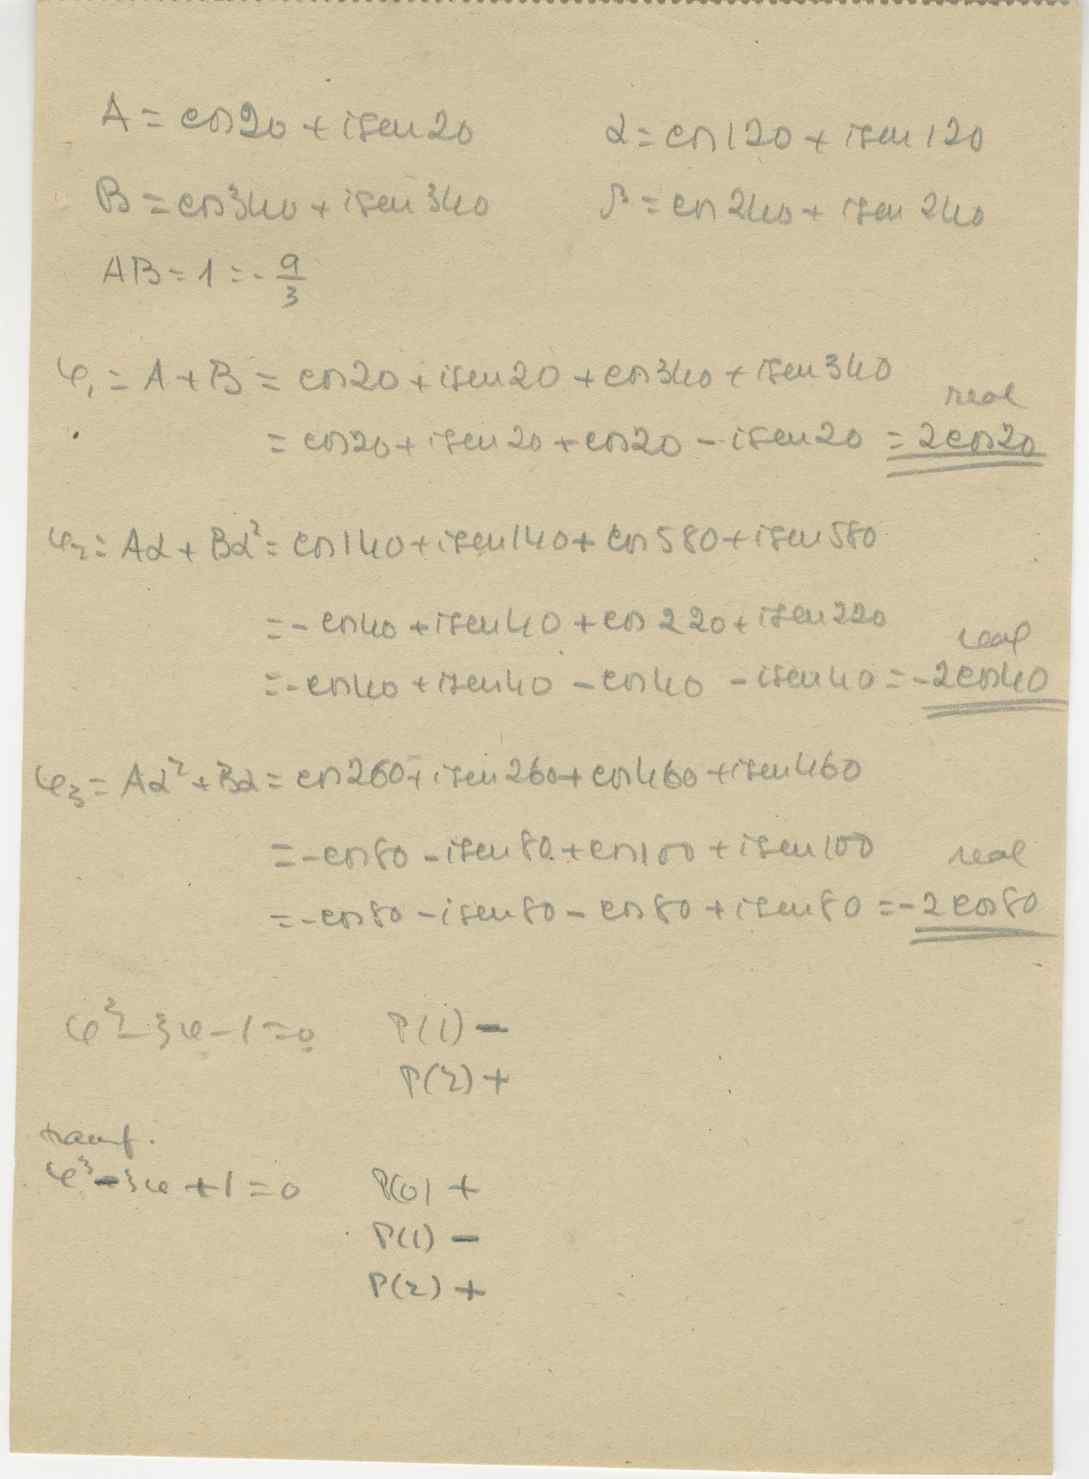 A = cos20 + isen20 α = cos120 + isen120
B = cos340 + isen340 β = cos240 + isen240
AB = 1 = - a/3
φ₁ = A + B = cos20 + isen20 + cos340 + isen340
real
= cos20 + isen20 + cos20 - isen20 = 2cos20
φ₂ = Aα + Bα² = cos140 + isen140 + cos580 + isen580
= - cos40 + isen40 + cos220 + isen220
real
= - cos40 + isen40 - cos40 - isen40 = -2cos40
φ₃ = Aα² + Bα = cos260 + isen260 + cos460 + isen460
= - cos80 - isen80 + cos100 + isen100
real
= - cos80 - isen80 - cos80 + isen80 = -2cos80
φ³ - 3φ - 1 = 0 P(1) -
P(2) +
transf.
φ³ - 3φ + 1 = 0 P(0) +
P(1) -
P(2) +